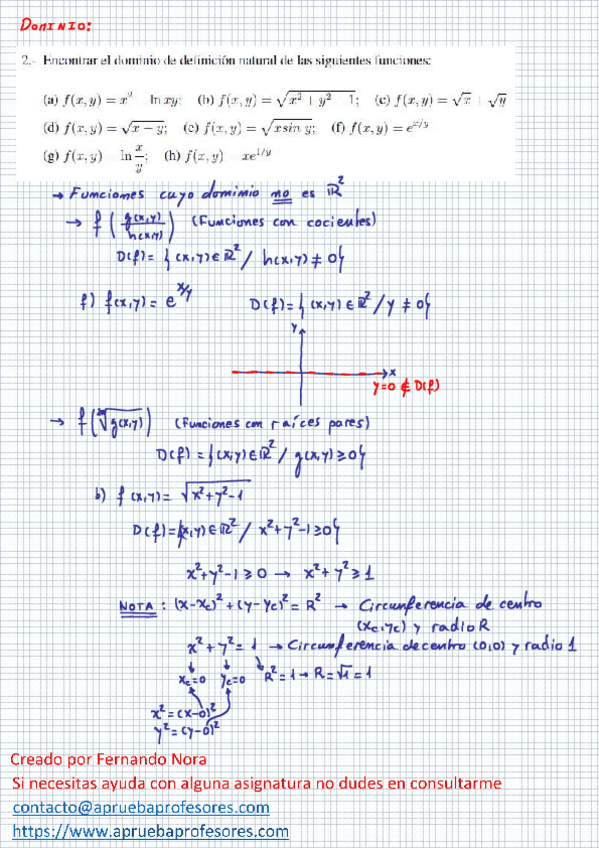 DOMINIO:
2.- Encontrar el dominio de definición natural de las siguientes funciones:
(a) f(x, y) = x^y ln xy; (b) f(x, y) = √(x² + y² − 1); (c) f(x, y) = √x + √y
(d) f(x, y) = √(x − y); (e) f(x, y) = √(x sin y); (f) f(x, y) = e^{x/y}
(g) f(x, y) ln x/y; (h) f(x, y) xe^{1/y}
→ Funciones cuyo dominio no es ℝ²
→ f(g(x,y)/h(x,y)) (Funciones con cocientes)
D(f) = {(x,y) ∈ ℝ² / h(x,y) ≠ 0}
f) f(x,y) = e^{x/y} D(f) = {(x,y) ∈ ℝ² / y ≠ 0}
Y
X
Y=0 ∉ D(f)
→ f(√g(x,y)) (Funciones con raíces pares)
D(f) = {(x,y) ∈ ℝ² / g(x,y) ≥ 0}
b) f(x,y) = √(x²+y²-1)
D(f) = {(x,y) ∈ ℝ² / x²+y²-1 ≥ 0}
x²+y²-1 ≥ 0 → x²+y² ≥ 1
NOTA: (x-xc)² + (y-yc)² = R² → Circunferencia de centro
(xc,yc) y radio R
x²+y² = 1 → Circunferencia de centro (0,0) y radio 1
xc=0 yc=0 R²=1 → R=√1=1
x² = (x-0)²
y² = (y-0)²
Creado por Fernando Nora
Si necesitas ayuda con alguna asignatura no dudes en consultarme
contacto@apruebaprofesores.com
https://www.apruebaprofesores.com